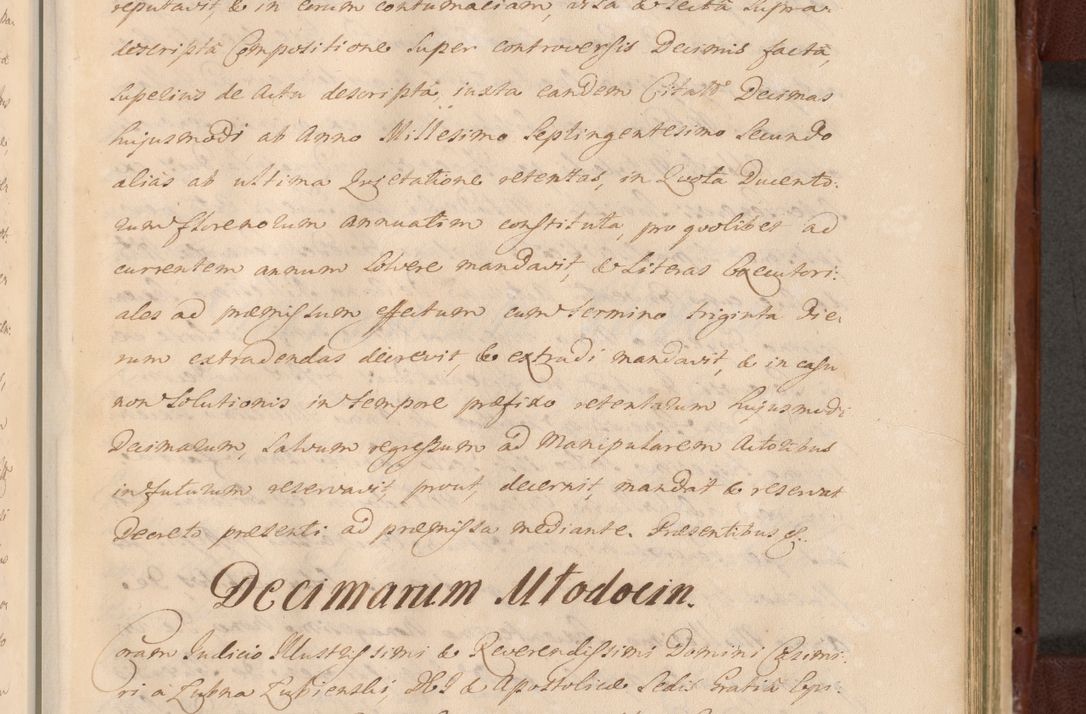 reputavit & in eorum contumaciam, visa & lecta supra-
descripta Compositione super controversis Decimis facta,
superius de Actu descripta, iuxta eandem Citat̃o Decimas
hujusmodi ab Anno Millesimo Septingentesimo Secundo
alias ab ultima Quietatione retentas, in Quota Ducento:
rum florenorum annuatim constituta, pro quolibet ad
currentem annum solvere mandavit, & Literas Executori:
ales ad præmissum effectum cum termino triginta Die:
rum extradendas decrevit, & extradi mandavit, & in casu
non solutionis in tempore præfixo retentarum hujusmodi
Decimarum, salvum regressum ad Manipularem Actoribus
in futurum reservavit, prout, decernit, mandat & reservat
Decreto præsenti ad præmissa mediante. Præsentibus &.
Decimarum Młodocin.
Coram Judicio Illustrissimi & Reverendissimi Domini Casimi:
ri a Łubna Łubienski, Dei & Apostolicæ Sedis Gratia Epi: